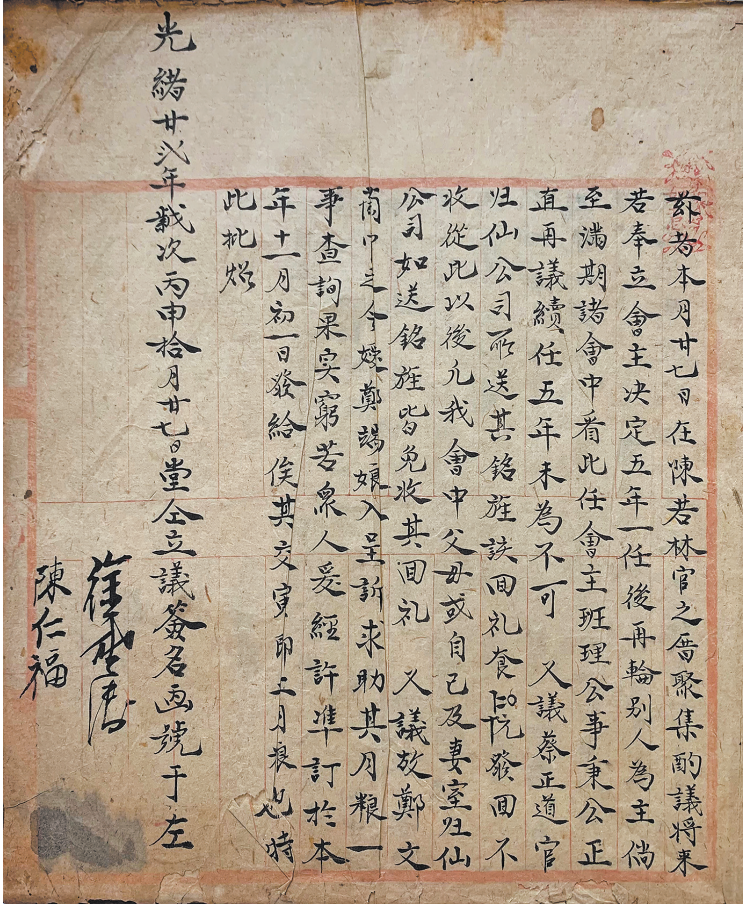 茲者本月廿七日在陳若林官之厝聚集酌議将来
若奉立會主决定五年一任後再輪别人為主倘
至滿期諸會中看此任會主班理公事秉公正
直再議續任五年未為不可　又議蔡正道官
归仙公司所送其銘旌談回礼奩 悦發回不
收從此以後凡我會中父毋或自己及妻室归仙
公司如送銘旌皆免收其回礼　又議故鄭文
之令嫒鄭端娘入呈訴求助其月粮一
事查詢果实窮苦衆人爰經許準訂於本
年十一月初一日發給俟其交寅即止月粮也時
此批炤
光緒廿弍年歲次丙申拾月廿七日堂仝立議簽名画號于左
徐
陳仁福